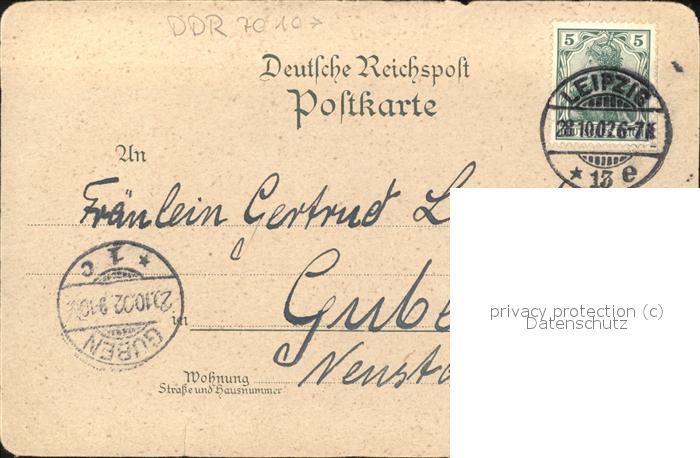 DDR 7010
Deutsche Reichspost
Postkarte
5 5
LEIPZIG
28.10.02 6-7
* 13 e
An
Fräulein Gertrud L
* 1 c
GUBEN
in Gube
Neusta
Wohnung
Straße und Hausnummer
privacy protection (c)
Datenschutz